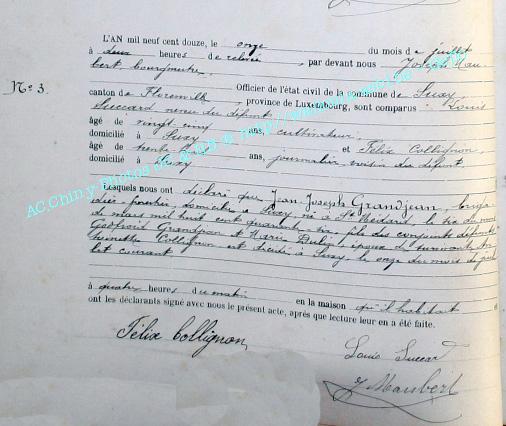 L'AN mil neuf cent douze, le onze du mois de juillet
à deux heures de relevée, par devant nous Joseph Mau
bert, bourgmestre,
N° 3. Officier de l'état civil de la commune de Suxy,
canton de Florenville, province de Luxembourg, sont comparus Louis
Succard neveu du défunt
âgé de vingt cinq ans, cultivateur,
domicilié à Suxy, et Félix Collignon,
âgé de trente ans, journalier voisin du défunt
domicilié à Suxy
Lesquels nous ont déclaré que Jean Joseph Grandjean,
domicilié à Suxy, né à St Médard, le six du mois
de mars mil huit cent quarante six, fils des conjoints défunts
Godfroid Grandjean et Marie Dubin, époux survivant
Collignon est décédé à Suxy, le onze du mois de juil
let courant
à quatre heures du matin en la maison qu'il habitait
ont les déclarants signé avec nous le présent acte, après que lecture leur en a été faite.
Félix Collignon
Louis Succard
J Maubert
AC.Chiny Photos